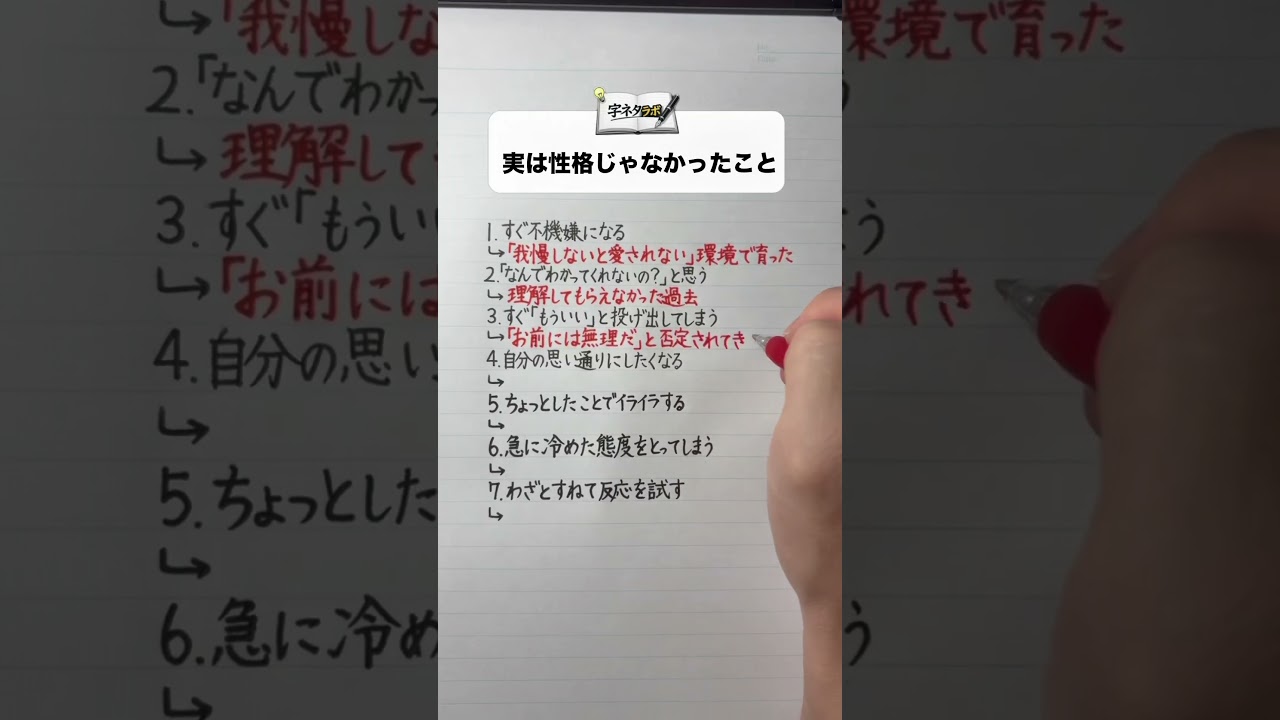 字ネタラボ
実は性格じゃなかったこと
1.すぐ不機嫌になる
↳「我慢しないと愛されない」環境で育った
2.「なんでわかってくれないの?」と思う
↳理解してもらえなかった過去
3.すぐ「もういい」と投げ出してしまう
↳「お前には無理だ」と否定されてき
4.自分の思い通りにしたくなる
↳
5.ちょっとしたことでイライラする
↳
6.急に冷めた態度をとってしまう
↳
7.わざとすねて反応を試す
↳